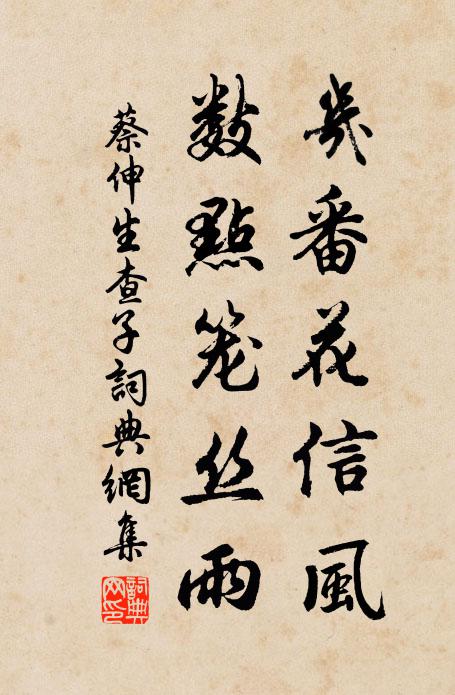 幾番花信風
數點笼丝雨
蔡伸生查子詞典網集
詞典
网印